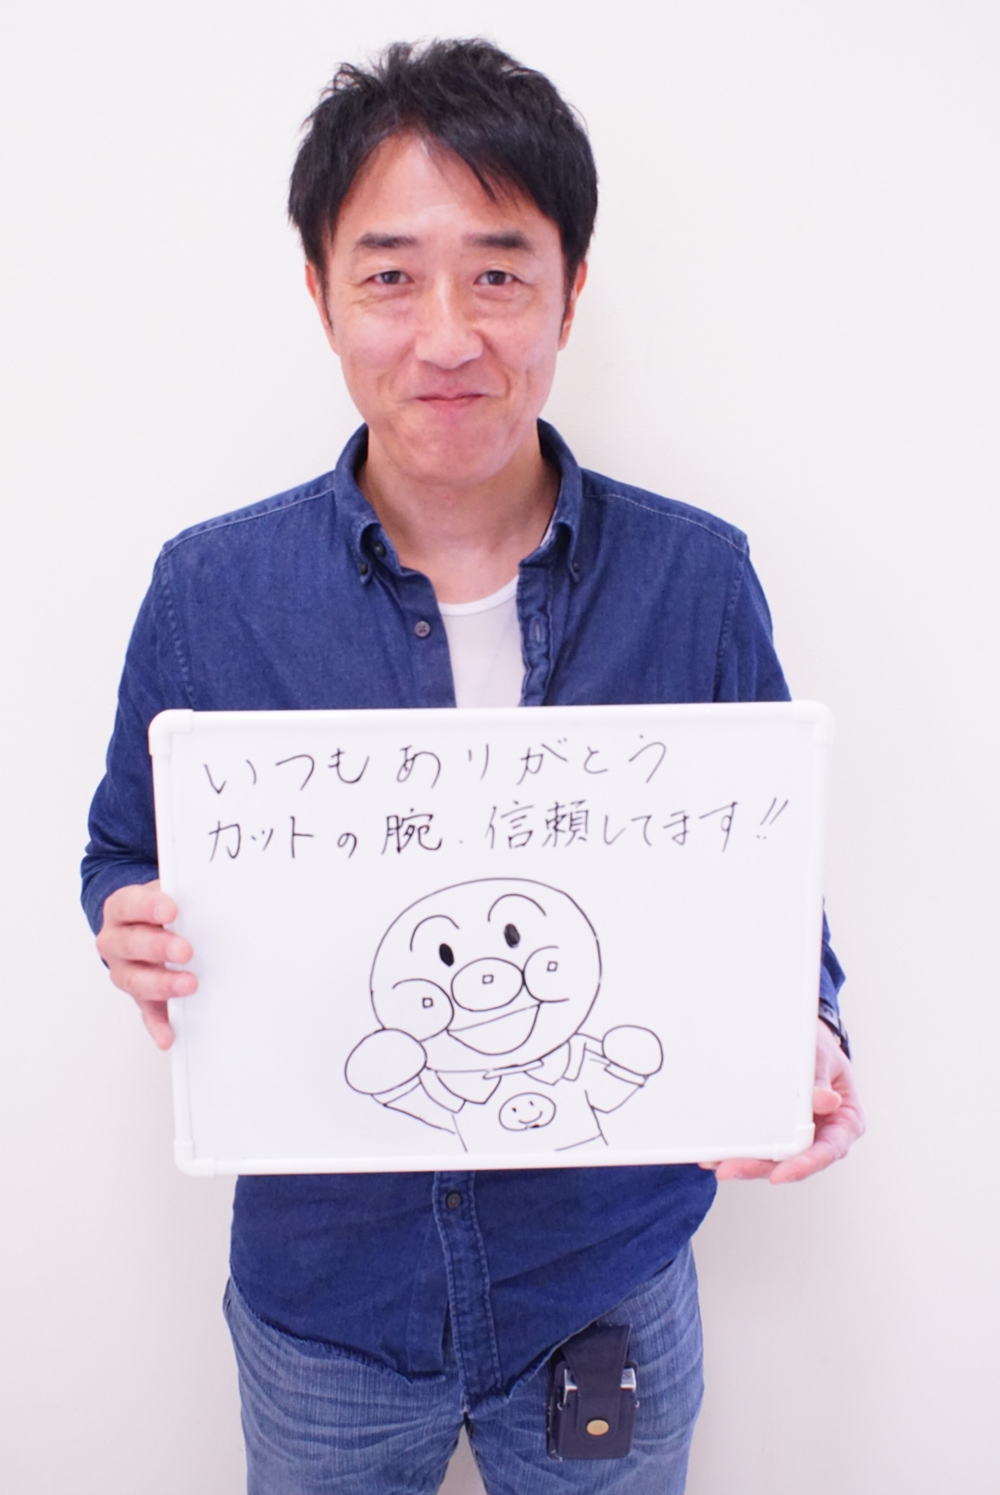 いつもありがとう
カットの腕.信頼してます!!